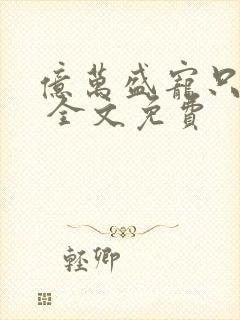 億萬盛寵只
全文免費
輕卿